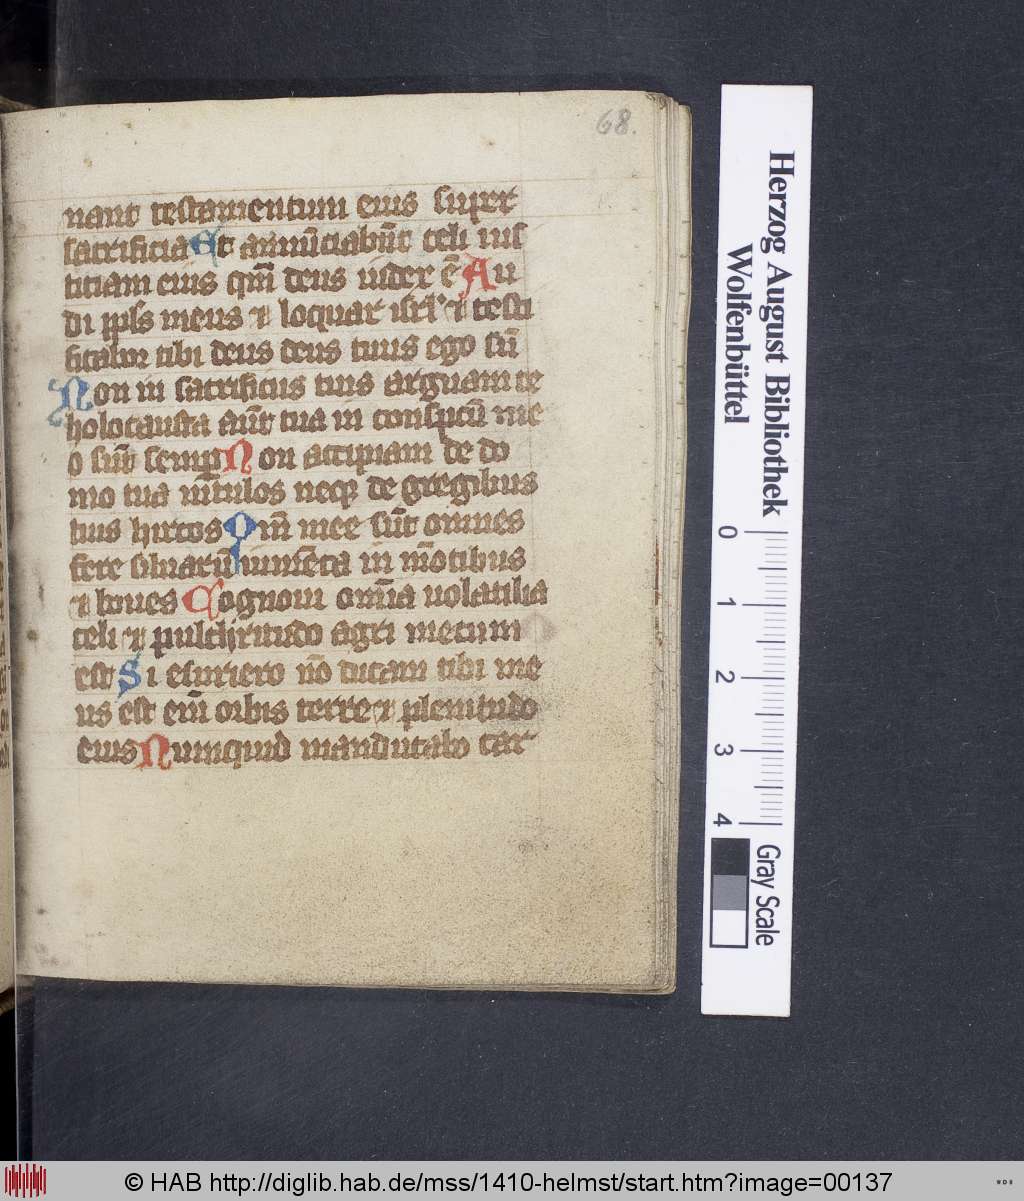 68.
nant testamentum eius super
sacrificia Et annūciabūt celi ius
titiam eius qm̄ deus iudex ē Au
di ppl̄s meus ⁊ loquar isrl̄ ⁊ testi
ficabor tibi deus deus tuus ego sū
Non in sacrificiis tuis arguam te
holocausta aūt tua in conspectū me
o sūt semp Non accipiam de do
mo tua vitulos neqꝫ de gregibus
tuis hircos Qm̄ mee sūt omnes
fere siluarū iumēta in mōtibus
⁊ boues Cognoui om̄ia uolatilia
celi ⁊ pulchritudo agri mecum
est Si esuriero nō dicam tibi me
us est em̄ orbis terre ⁊ plenitudo
eius Numquid manducabo car
Herzog August Bibliothek
Wolfenbüttel
0 1 2 3 4
Gray Scale
© HAB http://diglib.hab.de/mss/1410-helmst/start.htm?image=00137